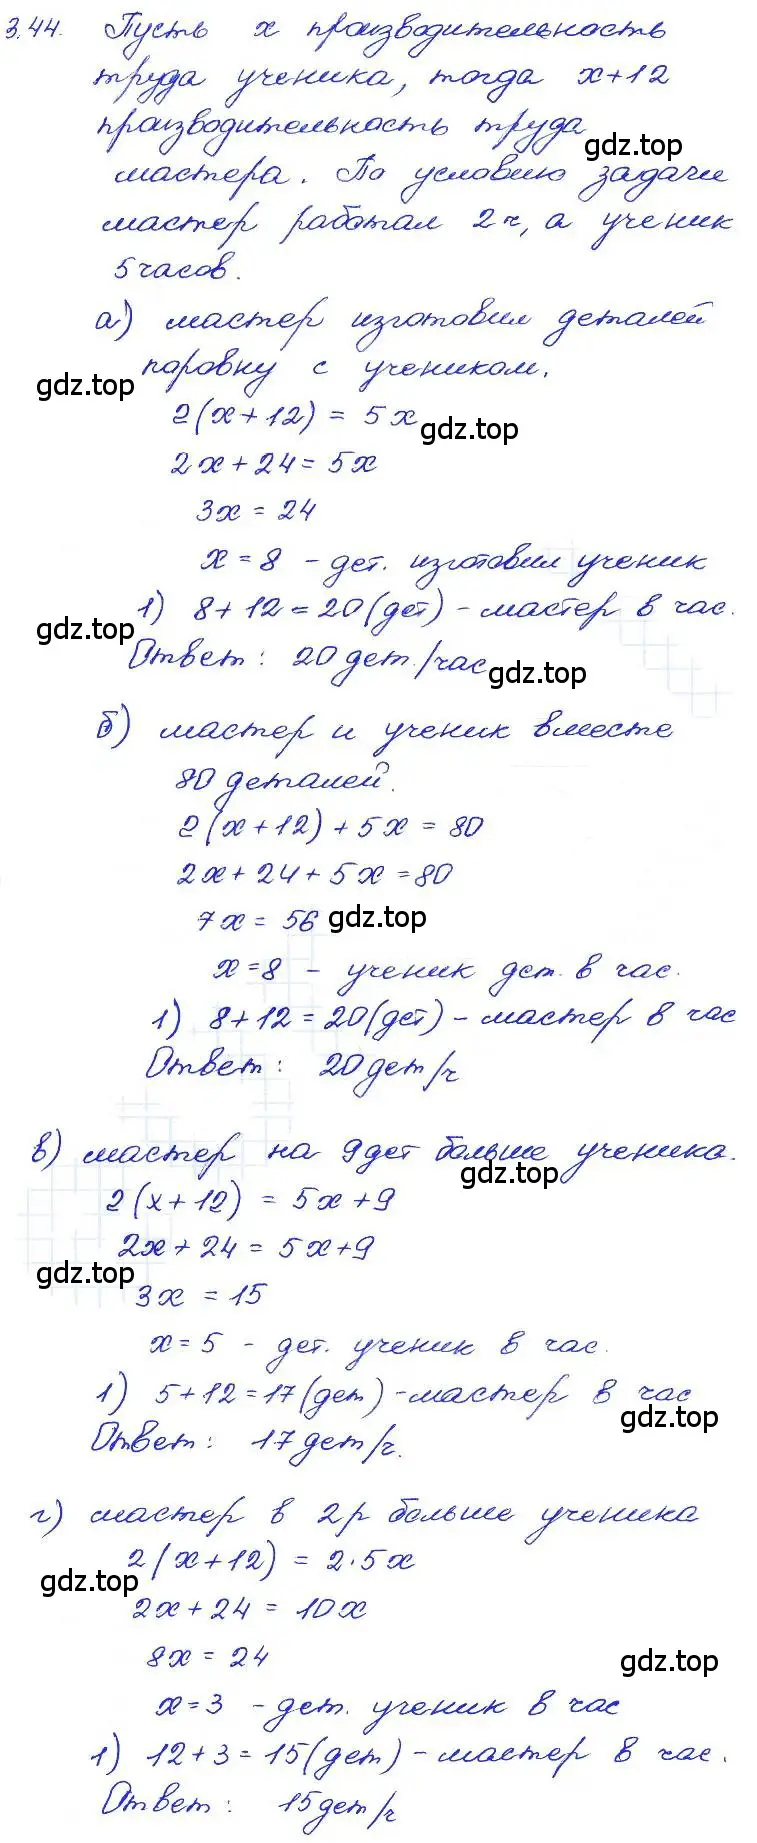 3.44. Пусть x производительность
труда ученика, тогда x+12
производительность труда
gdz.top
мастера. По условию задачи
мастер работал 2ч, а ученик
5 часов.
а) мастер изготовил деталей
поровну с учеником.
gdz.top
2(x+12) = 5x
gdz.top
2x+24=5x
3x = 24
x=8 - дет. изготовил ученик
1) 8+12=20(дет) - мастер в час.
gdz.top
Ответ: 20 дет/час
gdz.top
б) мастер и ученик вместе
80 деталей.
2(x+12)+5x = 80
2x+24+5x=80
7x = 56
gdz.top
x=8 - ученик дет. в час.
1) 8+12=20(дет) - мастер в час
Ответ: 20 дет/ч
в) мастер на 9 дет больше ученика.
gdz.top
2(x+12) = 5x+9
2x+24=5x+9
gdz.top
3x = 15
x=5 - дет. ученик в час.
1) 5+12=17(дет) - мастер в час
gdz.top
Ответ: 17 дет/ч.
г) мастер в 2р больше ученика
2(x+12) = 2·5x
gdz.top
2x+24=10x
8x = 24
gdz.top
x=3 - дет. ученик в час
1) 12+3=15(дет) - мастер в час.
Ответ: 15 дет/ч
gdz.top